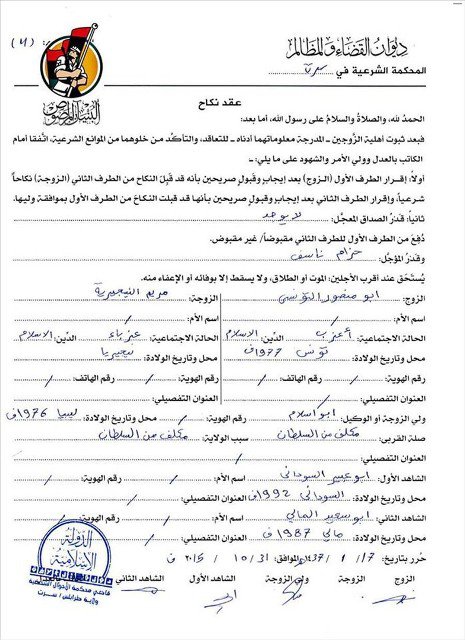 ديوان القضاء والمظالم
المحكمة الشرعية في
عقد نكاح
الحمدُ لله، والصلاةُ والسلامُ على رسول الله، أما بعد:
فبعد ثبوت أهلية الزَّوجين - المدرجة معلوماتهما أدناه - للتعاقد، والتأكّد من خلوهما من الموانع الشرعية، اتَّفقا أمام
الكاتب بالعدل وولي الأمر والشهود على ما يلي:
أولاً: إقـرار الطرف الأول (الزوج) بعد إيجاب وقبولٍ صريحين بأنه قد قبِلَ النكاح من الطرف الثاني (الزوجة) نكاحاً
شرعياً، وإقرار الطرف الثاني بعد إيجاب وقبولٍ صريحين بأنها قد قبلت النكاح من الطرف الأول بموافقة وليها.
ثانياً: قدرُ الصداق المعجّل: لا يوجد
دُفِعَ من الطرف الأول للطرف الثاني مقبوضاً/ غير مقبوض.
وقدرُ المؤجّل: حزام ناسف
يُستَحق عند أقرب الأجلين: الموت أو الطلاق، ولا يسقط إلا بوفائه أو الإعفاء منه.
الزوج: ابو منصور التونسي الزوجة: مريم النيجيرية
اسم الأم: اسم الأم:
الحالة الاجتماعية: أعزب الدّين: الاسلام الحالة الاجتماعية: عزباء الدّين: الاسلام
محل وتاريخ الولادة: تونس 1977ف محل وتاريخ الولادة: نيجيريا
رقم الهوية: / رقم الهاتف: / رقم الهوية: / رقم الهاتف: /
العنوان التفصيلي: / العنوان التفصيلي: /
ولي الزوجة أو الوكيل: ابو اسلام رقم الهوية: / محل وتاريخ الولادة: ليبيا 1976ف
صلة القربى: مكلف من السلطان سبب الولاية: مكلف من السلطان
العنوان التفصيلي: /
الشاهد الأول: ابو عمير السوداني اسم الأم: / رقم الهوية: /
محل وتاريخ الولادة: السودان 1992ف العنوان التفصيلي: /
الشاهد الثاني: ابو سعيد المالي اسم الأم: / رقم الهوية: /
محل وتاريخ الولادة: مالي 1987ف العنوان التفصيلي: /
حُرر بتاريخ: 17 / 1 / 1437 الموافق: 31 / 10 / 2015 ف
الزوج الزوجة ولي الزوجة الشاهد الأول الشاهد الثاني
الدولة
الإسلامية
قاضي محكمة الأحوال الشخصية
ولاية طرابلس / سرت